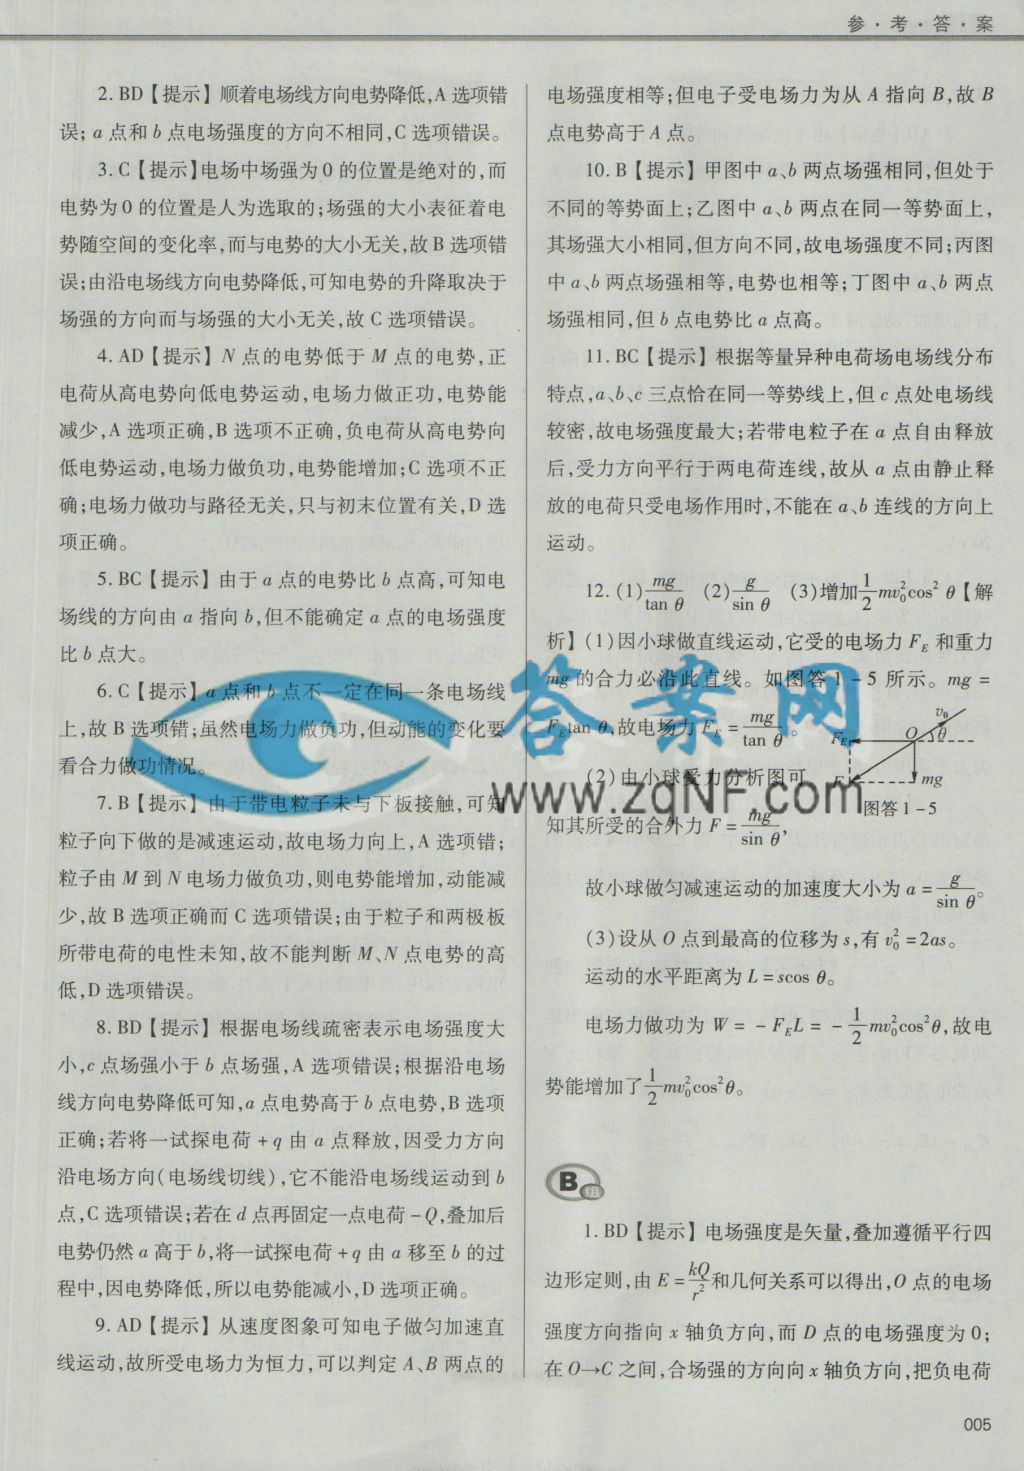 参·考·答·案
2. BD【提示】顺着电场线方向电势降低,A 选项错
误; a 点和 b 点电场强度的方向不相同,C 选项错误。
3. C【提示】电场中场强为 0 的位置是绝对的,而
电势为 0 的位置是人为选取的;场强的大小表征着电
势随空间的变化率,而与电势的大小无关,故 B 选项错
误;由沿电场线方向电势降低,可知电势的升降取决于
场强的方向而与场强的大小无关,故 C 选项错误。
4. AD【提示】N 点的电势低于 M 点的电势,正
电荷从高电势向低电势运动,电场力做正功,电势能
减少,A 选项正确,B 选项不正确,负电荷从高电势向
低电势运动,电场力做负功,电势能增加;C 选项不正
确;电场力做功与路径无关,只与初末位置有关,D 选
项正确。
5. BC【提示】由于 a 点的电势比 b 点高,可知电
场线的方向由 a 指向 b,但不能确定 a 点的电场强度
比 b 点大。
6. C【提示】a 点和 b 点不一定在同一条电场线
上,故 B 选项错;虽然电场力做负功,但动能的变化要
看合力做功情况。
7. B【提示】由于带电粒子未与下板接触,可知
粒子向下做的是减速运动,故电场力向上,A 选项错;
粒子由 M 到 N 电场力做负功,则电势能增加,动能减
少,故 B 选项正确而 C 选项错误;由于粒子和两极板
所带电荷的电性未知,故不能判断 M、N 点电势的高
低,D 选项错误。
8. BD【提示】根据电场线疏密表示电场强度大
小,c 点场强小于 b 点场强,A 选项错误;根据沿电场
线方向电势降低可知,a 点电势高于 b 点电势,B 选项
正确;若将一试探电荷 +q 由 a 点释放,因受力方向
沿电场方向(电场线切线),它不能沿电场线运动到 b
点,C 选项错误;若在 d 点再固定一点电荷 -Q,叠加后
电势仍然 a 高于 b,将一试探电荷 +q 由 a 移至 b 的过
程中,因电势降低,所以电势能减小,D 选项正确。
9. AD【提示】从速度图象可知电子做匀加速直
线运动,故所受电场力为恒力,可以判定 A、B 两点的
电场强度相等;但电子受电场力为从 A 指向 B,故 B
点电势高于 A 点。
10. B【提示】甲图中 a、b 两点场强相同,但处于
不同的等势面上;乙图中 a、b 两点在同一等势面上,
其场强大小相同,但方向不同,故电场强度不同;丙图
中 a、b 两点场强相等,电势也相等;丁图中 a、b 两点
场强相同,但 b 点电势比 a 点高。
11. BC【提示】根据等量异种电荷场电场线分布
特点,a、b、c 三点恰在同一等势线上,但 c 点处电场线
较密,故电场强度最大;若带电粒子在 a 点自由释放
后,受力方向平行于两电荷连线,故从 a 点由静止释
放的电荷只受电场作用时,不能在 a、b 连线的方向上
运动。
12. (1) mg/tan θ (2) g/sin θ (3)增加 1/2 mv₀²cos² θ【解
析】(1)因小球做直线运动,它受的电场力 F_E 和重力
mg 的合力必沿此直线。如图答 1-5 所示。mg =
F_E tan θ,故电场力 F_E = mg/tan θ。
(2)由小球受力分析图可
知其所受的合外力 F = mg/sin θ,
v₀
θ
O
F_E
F
mg
图答 1-5
故小球做匀减速运动的加速度大小为 a = g/sin θ。
(3)设从 O 点到最高的位移为 s,有 v₀² = 2as。
运动的水平距离为 L = scos θ。
电场力做功为 W = -F_E L = -1/2 mv₀²cos²θ,故电
势能增加了 1/2 mv₀²cos²θ。
B组
1. BD【提示】电场强度是矢量,叠加遵循平行四
边形定则,由 E = kQ/r² 和几何关系可以得出,O 点的电场
强度方向指向 x 轴负方向,而 D 点的电场强度为 0;
在 O→C 之间,合场强的方向向 x 轴负方向,把负电荷
005
答案网
www.zqNF.com